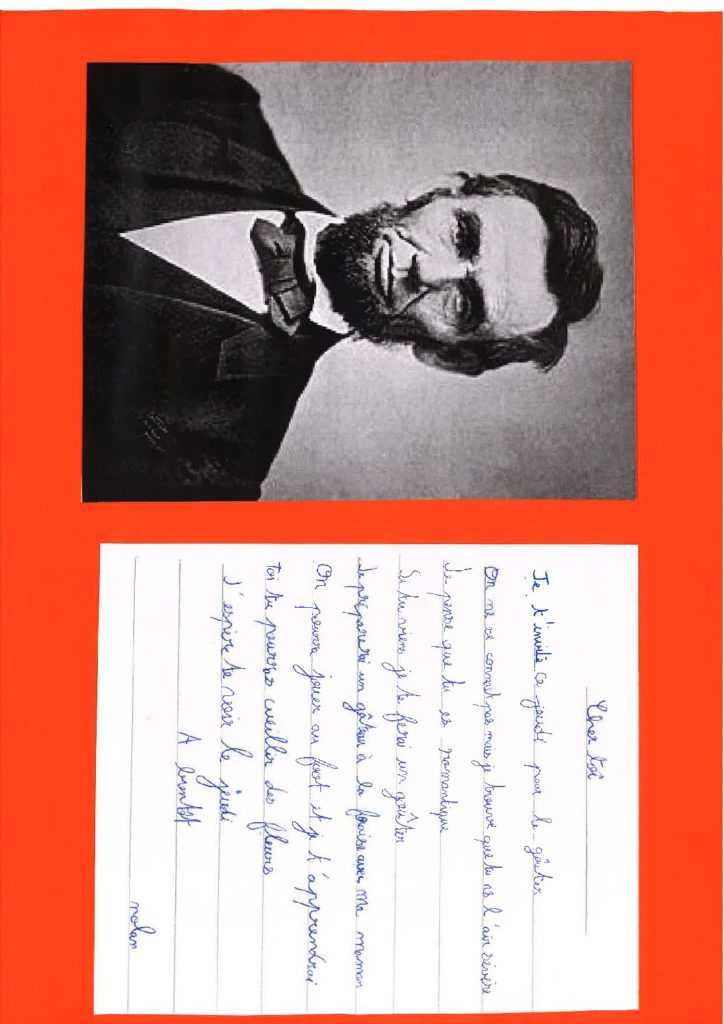 Cher toi
Je t'invite ce jeudi pour le goûter
On ne se connait pas mais je trouve que tu as l'air sévère
Je pense que tu es romantique
Si tu viens je te ferai un goûter
Je préparerai un gâteau à la fraise avec ma maman
On pourra jouer au foot et je t'apprendrai
Toi tu pourras cueillir des fleurs
J'espère te voir le jeudi
A bientôt
nolan